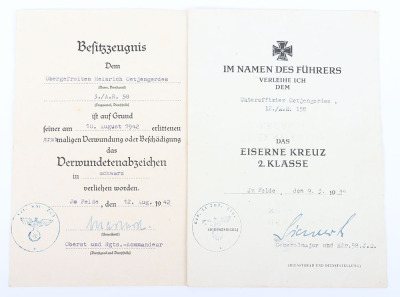 Besitzzeugnis
Dem
Obergefreiten Heinrich Oetjengerdes
(Name, Dienstgrad)
3./A.R. 58
(Truppenteil, Dienststelle)
ist auf Grund
seiner am 10. August 1942 erlittenen
einmaligen Verwundung oder Beschädigung
das
Verwundetenabzeichen
in schwarz
verliehen worden.
Im Felde, den 12. Aug. 1942
(Unterschrift)
Oberst und Rgts.-Kommandeur
(Dienstgrad und Dienststelle)
IM NAMEN DES FÜHRERS
VERLEIHE ICH
DEM
Unteroffizier Oetjengerdes,
12./A.R. 158
DAS
EISERNE KREUZ
2. KLASSE
Im Felde, den 9. 2. 19
(DIENSTSIEGEL)
Generalmajor und Kdr.
(DIENSTGRAD UND DIENSTSTELLUNG)